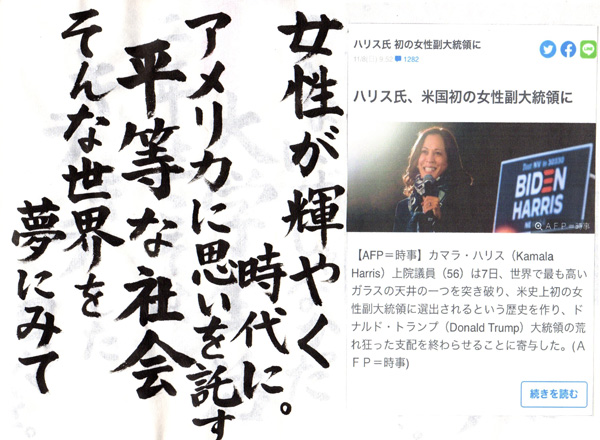 女性が輝やく
時代に。
アメリカに思いを託す
平等な社会
そんな世界を
夢にみて
ハリス氏 初の女性副大統領に
1282
ハリス氏、米国初の女性副大統領に
Text JOIN to 30330
BIDEN
HARRIS
AFP＝時事
【AFP＝時事】カマラ・ハリス（Kamala
Harris）上院議員（56）は7日、世界で最も高い
ガラスの天井の一つを突き破り、米史上初の女
性副大統領に選出されるという歴史を作り、ド
ナルド・トランプ（Donald Trump）大統領の荒
れ狂った支配を終わらせることに寄与した。(A
FP＝時事)
続きを読む